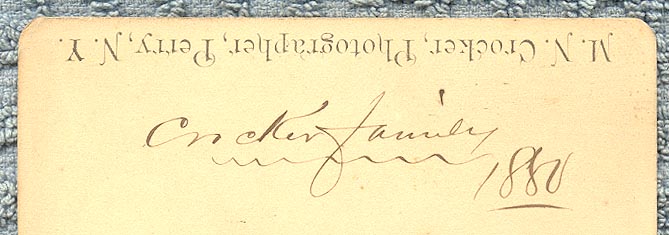 M. N. Crocker, Photographer, Perry, N. Y.
Crocker family
1880